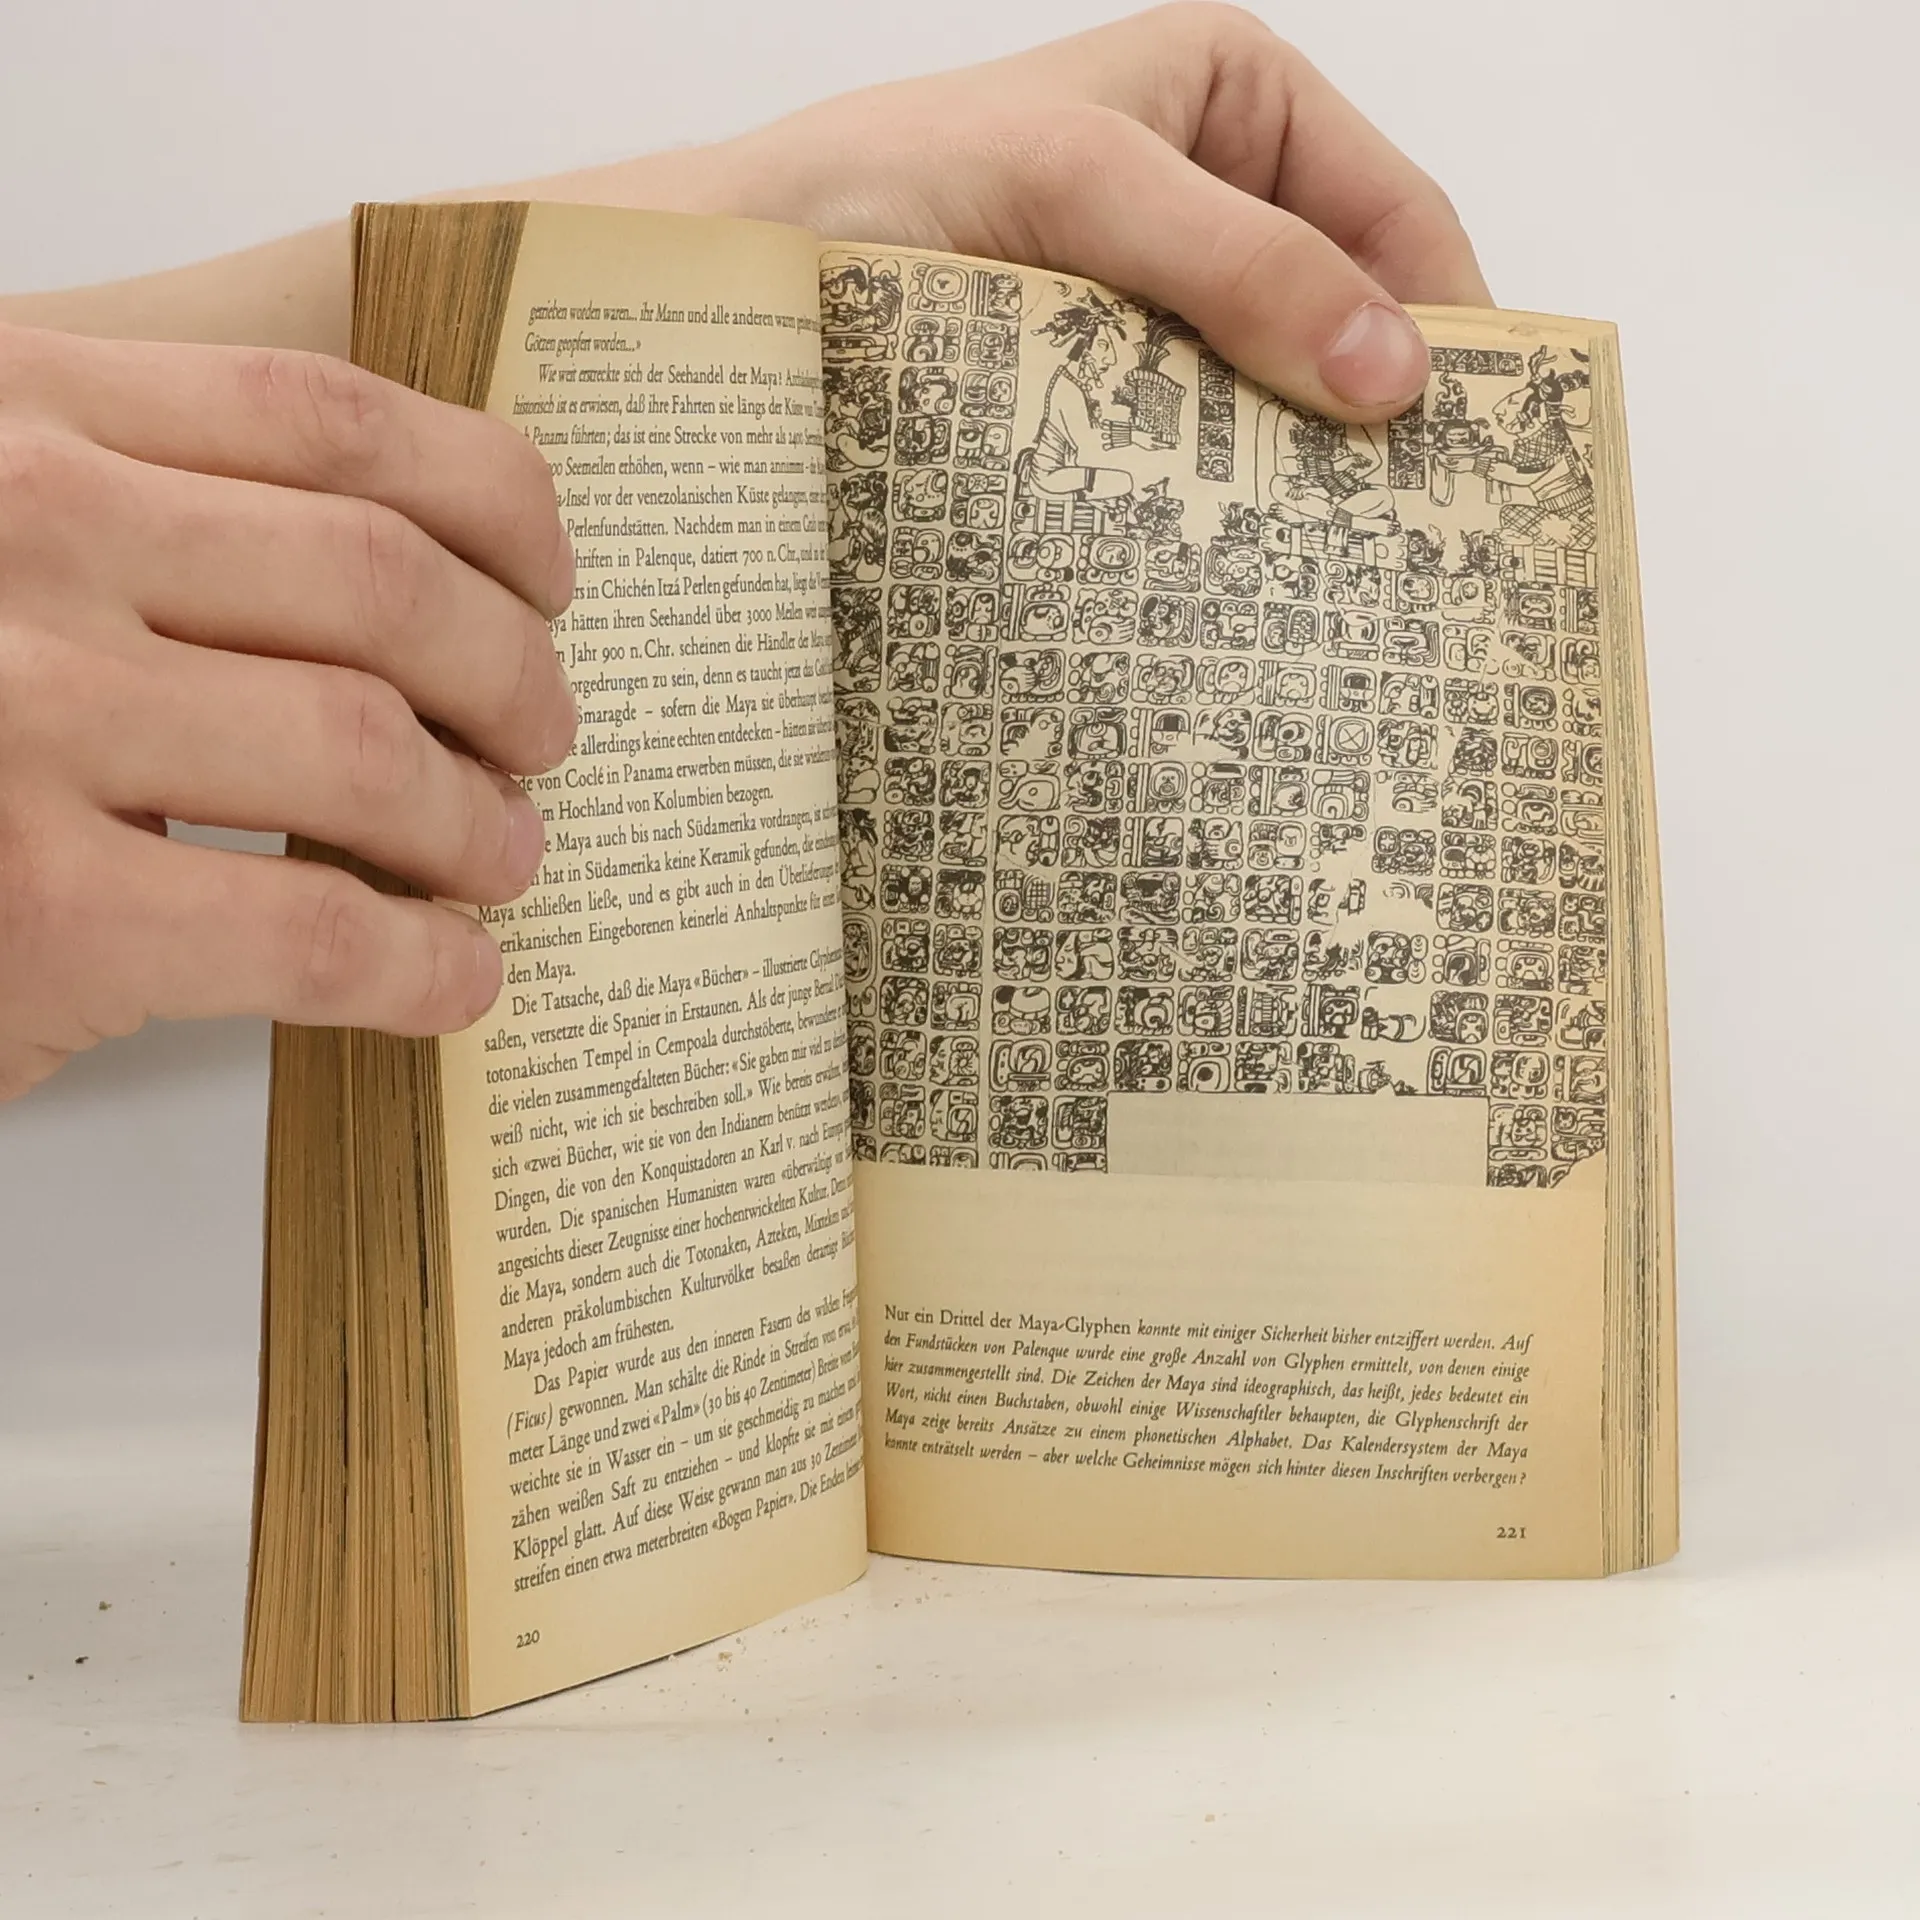 getrieben worden waren... ihr Mann und alle anderen waren
Götzen geopfert worden...»
Wie weit erstreckte sich der Seehandel der Maya?
historisch ist es erwiesen, daß ihre Fahrten sie längs der Küste von
Panama führten; das ist eine Strecke von mehr als 2400
Seemeilen erhöhen, wenn – wie man annimmt – die
Insel vor der venezolanischen Küste gelangten, einer der
Perlenfundstätten. Nachdem man in einem Grab
in Palenque, datiert 700 n. Chr., und in der
in Chichén Itzá Perlen gefunden hat, liegt die
hätten ihren Seehandel über 3000 Meilen weit
Jahr 900 n. Chr. scheinen die Händler der Maya
zu sein, denn es taucht jetzt das
Smaragde – sofern die Maya sie überhaupt
allerdings keine echten entdecken – hätten sie über
von Coclé in Panama erwerben müssen, die sie wiederum
im Hochland von Kolumbien bezogen.
Maya auch bis nach Südamerika vordrangen, ist
hat in Südamerika keine Keramik gefunden, die
Maya schließen ließe, und es gibt auch in den Überlieferungen
Eingeborenen keinerlei Anhaltspunkte für einen
den Maya.
Die Tatsache, daß die Maya «Bücher» – illustrierte
saßen, versetzte die Spanier in Erstaunen. Als der junge Bernal
totonakischen Tempel in Cempoala durchstöberte, bewunderte er
die vielen zusammengefalteten Bücher: «Sie gaben mir viel zu
weiß nicht, wie ich sie beschreiben soll.» Wie bereits erwähnt,
sich «zwei Bücher, wie sie von den Indianern benützt werden»,
Dingen, die von den Konquistadoren an Karl v. nach Europa
wurden. Die spanischen Humanisten waren «überwältigt vor
angesichts dieser Zeugnisse einer hochentwickelten Kultur. Denn
die Maya, sondern auch die Totonaken, Azteken, Mixteken und
anderen präkolumbischen Kulturvölker besaßen derartige
Maya jedoch am frühesten.
Das Papier wurde aus den inneren Fasern des wilden
(Ficus) gewonnen. Man schälte die Rinde in Streifen von etwa
meter Länge und zwei «Palm» (30 bis 40 Zentimeter) Breite vom
weichte sie in Wasser ein – um sie geschmeidig zu machen und
zähen weißen Saft zu entziehen – und klopfte sie mit einem
Klöppel glatt. Auf diese Weise gewann man aus 30 Zentimeter
streifen einen etwa meterbreiten «Bogen Papier». Die Enden
220
Nur ein Drittel der Maya-Glyphen konnte mit einiger Sicherheit bisher entziffert werden. Auf
den Fundstücken von Palenque wurde eine große Anzahl von Glyphen ermittelt, von denen einige
hier zusammengestellt sind. Die Zeichen der Maya sind ideographisch, das heißt, jedes bedeutet ein
Wort, nicht einen Buchstaben, obwohl einige Wissenschaftler behaupten, die Glyphenschrift der
Maya zeige bereits Ansätze zu einem phonetischen Alphabet. Das Kalendersystem der Maya
konnte enträtselt werden – aber welche Geheimnisse mögen sich hinter diesen Inschriften verbergen?
221